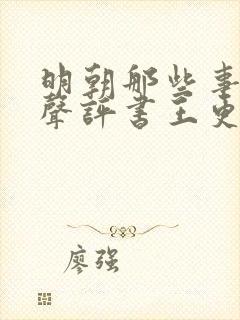 明朝那些事
聲評書王更
廖强